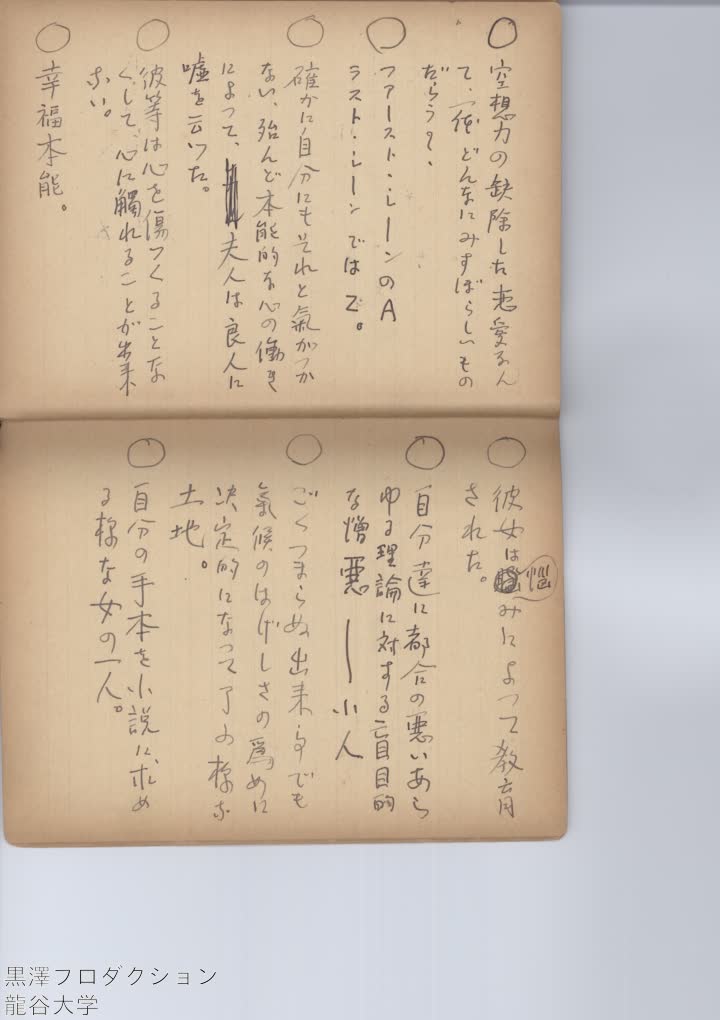 ○空想力の欠除した恋愛なん
て、一体どんなにみすばらしいもの
だらう?、
○ファースト・シーンのA
ラスト・シーンではZ。
○確かに自分にもそれと氣がつか
ない、殆んど本能的な心の働き
によって、夫人は良人に
嘘を云った。
○彼等は心を傷つくることな
くして、心に觸れることが出来
ない。
○幸福本能。
○彼女は悩みによって教育
された。
○自分達に都合の悪いあら
ゆる理論に対する盲目的
な憎悪 ―小人
○ごくつまらぬ出来事でも
氣候のはげしさの爲めに
決定的になって了ふ様な
土地。
○自分の手本を小説に求め
る様な女の一人。
黒澤プロダクション
龍谷大学